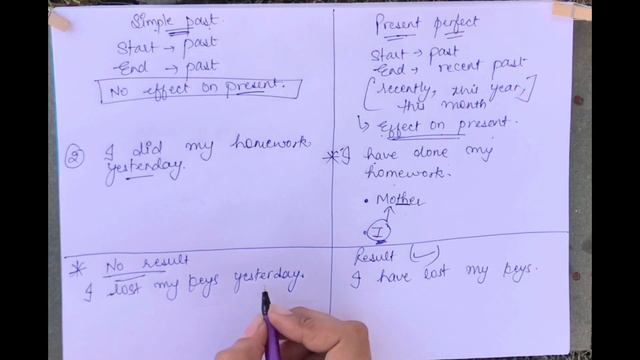 Simple past
Start → past
End → past
No effect on present.
② I did my homework
yesterday.
* No result
I lost my keys yesterday.
Present perfect
Start → past
End → recent past
[recently, this year,
this month]
↳ Effect on present.
* I have done my
homework.
• Mother
• I
Result
I have lost my keys.